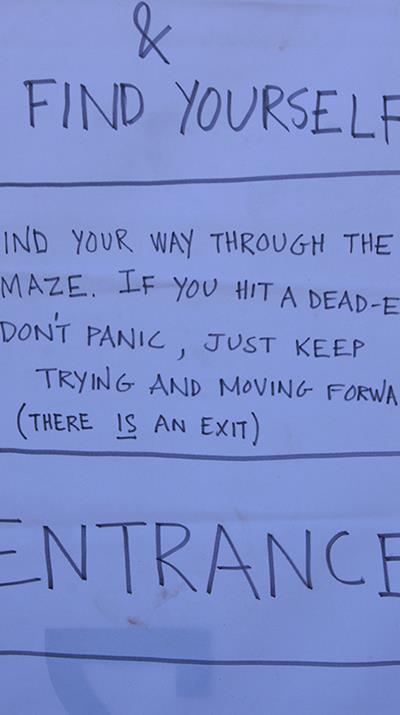 &
FIND YOURSELF
IND YOUR WAY THROUGH THE
MAZE. IF YOU HIT A DEAD-E
DON'T PANIC, JUST KEEP
TRYING AND MOVING FORWA
(THERE IS AN EXIT)
ENTRANCE